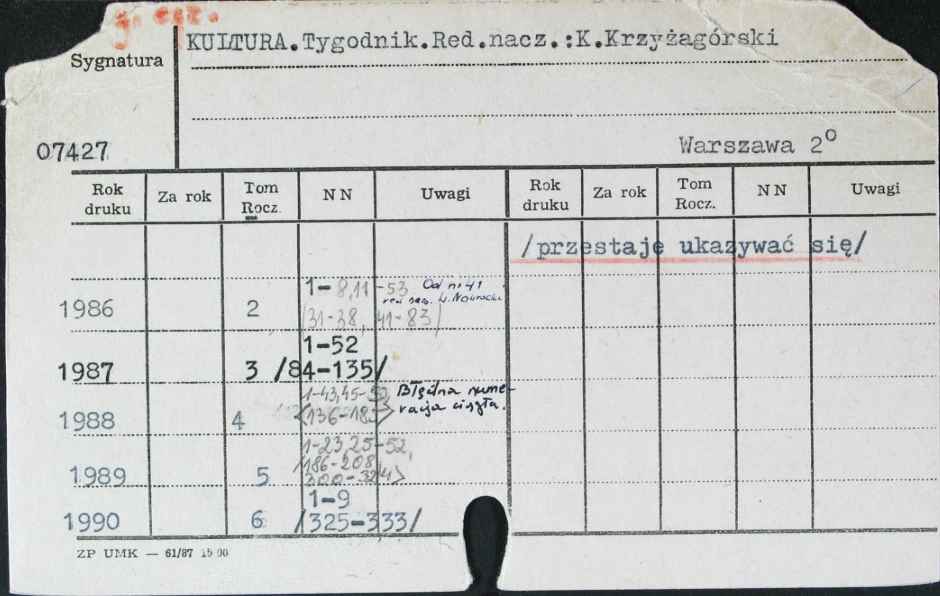 j. egz.
KULTURA.Tygodnik.Red.nacz.:K.Krzyżagórski
Sygnatura
07427
Warszawa 2°
Rok druku Za rok Tom Rocz. NN Uwagi Rok druku Za rok Tom Rocz. NN Uwagi
/przestaje ukazywać się/
1986 2 1-8,11-53 Od nr 41
(31-38, 41-83)
1-52
1987 3 /84-135/
1-43,45-52, Błędna nume-
1988 4 <136-183> racja ciągła.
1-23,25-52,
/186-208
1989 5 300-324>
1-9
1990 6 /325-333/
ZP UMK — 61/87 15 00